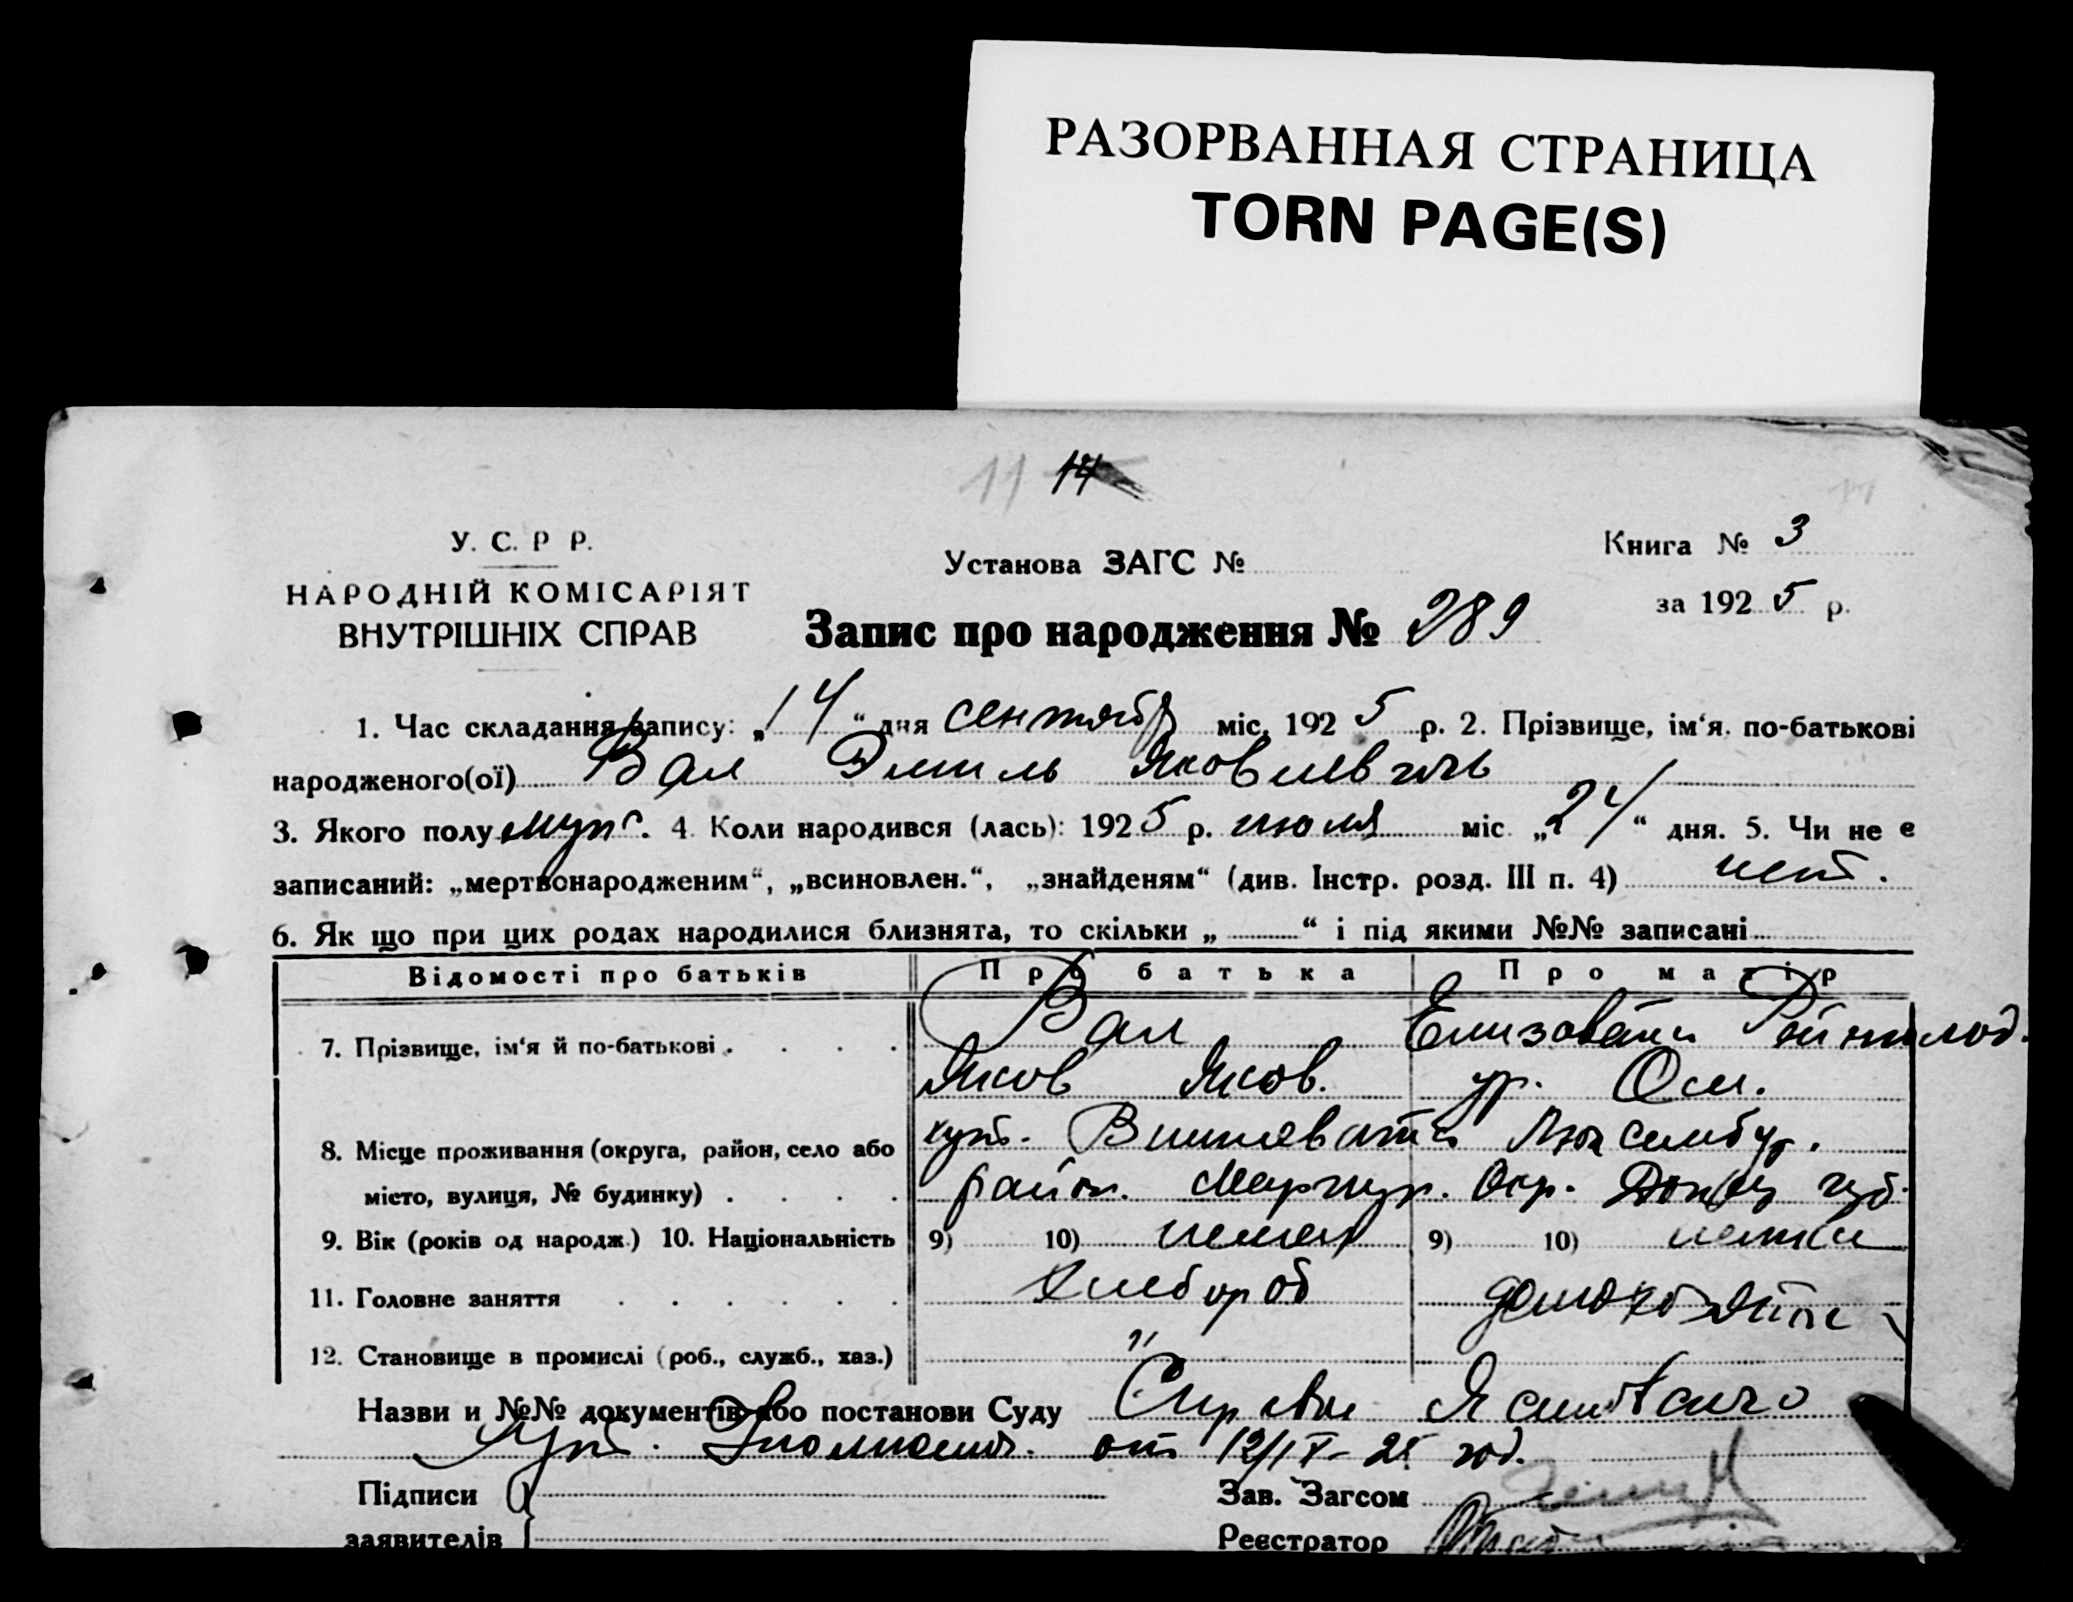 РАЗОРВАННАЯ СТРАНИЦА
TORN PAGE(S)
11 14
У. С. Р Р.
НАРОДНІЙ КОМІСАРІЯТ
ВНУТРІШНІХ СПРАВ
Установа ЗАГС №
Книга № 3
за 1925 р.
Запис про народження № 289
1. Час складання запису: „14“ дня сентября міс. 1925 р. 2. Прізвище, ім‘я. по-батькові
народженого(ої) Вал Эмиль Яковлевичь
3. Якого полу муж. 4 Коли народився (лась): 1925 р. июля міс „24“ дня. 5. Чи не є
записаний: „мертвонародженим“, „всиновлен.“, „знайденям“ (див. Інстр. розд. III п. 4) нет.
6. Як що при цих родах народилися близнята, то скільки „ “ і під якими №№ записані
Відомості про батьків Про батька Про матір
7. Прізвище, ім‘я й по-батькові Вал Елизовета
Яков Яков. ур.
8. Місце проживання (округа, район, село або хут. Люксембур.
місто, вулиця, № будинку) район. Мариуп. Окр. Донец губ.
9. Вік (років од народж.) 10. Національність 9) 10) немец 9) 10) немка
11. Головне заняття Хлебороб домохозяйка
12. Становище в промислі (роб., служб., хаз.) "
Назви и №№ документів або постанови Суду
от 12/IX-25 год.
Підписи
заявителів
Зав. Загсом
Реєстратор